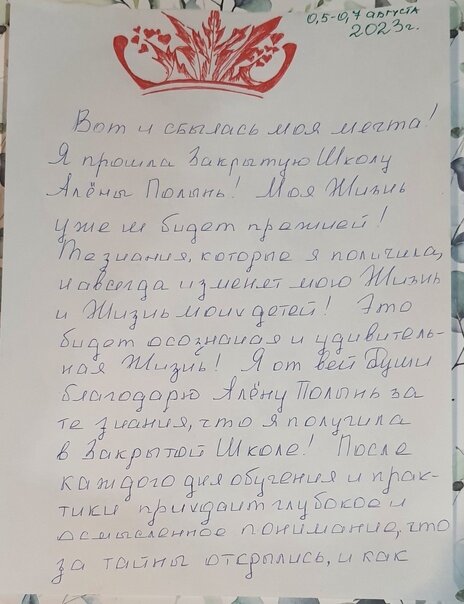 0,5-0,7 августа
2023г.
Вот и сбылась моя мечта!
Я прошла Закрытую Школу
Алёны Полынь! Моя Жизнь
уже не будет прежней!
Те знания, которые я получила,
навсегда изменят мою Жизнь
и Жизнь моих детей! Это
будет осознаная и удивитель-
ная Жизнь! Я от всей Души
благодарю Алёну Полынь за
те знания, что я получила
в Закрытой Школе! После
каждого дня обучения и прак-
тики приходит глубокое и
осмысленное понимание, что
за тайны открылись, и как